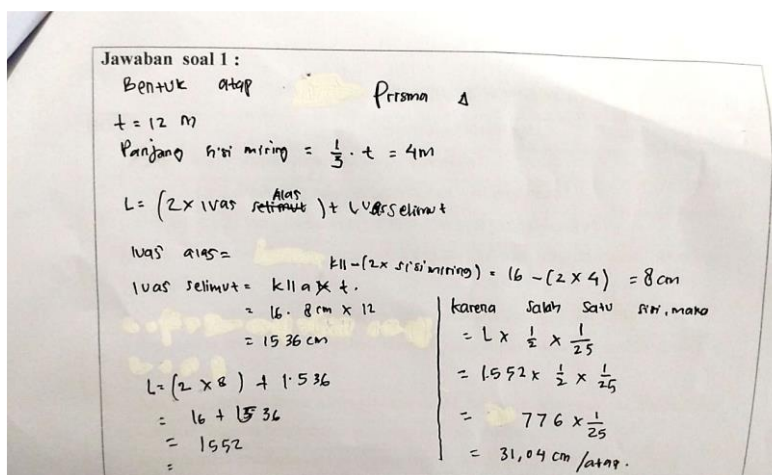 Jawaban soal 1 :
Bentuk atap Prisma Δ
t = 12 m
Panjang sisi miring = 1/3 . t = 4m
L = (2 x luas selimut Alas) + luas selimut
luas alas =
kll - (2x sisi miring) = 16 - (2 x 4) = 8 cm
luas selimut = kll a x t.
= 16 . 8 cm x 12
= 1536 cm
L = (2 x 8) + 1.536
= 16 + 1536
= 1552
=
karena salah satu sisi, maka
= L x 1/2 x 1/25
= 1.552 x 1/2 x 1/25
= 776 x 1/25
= 31,04 cm /atap.